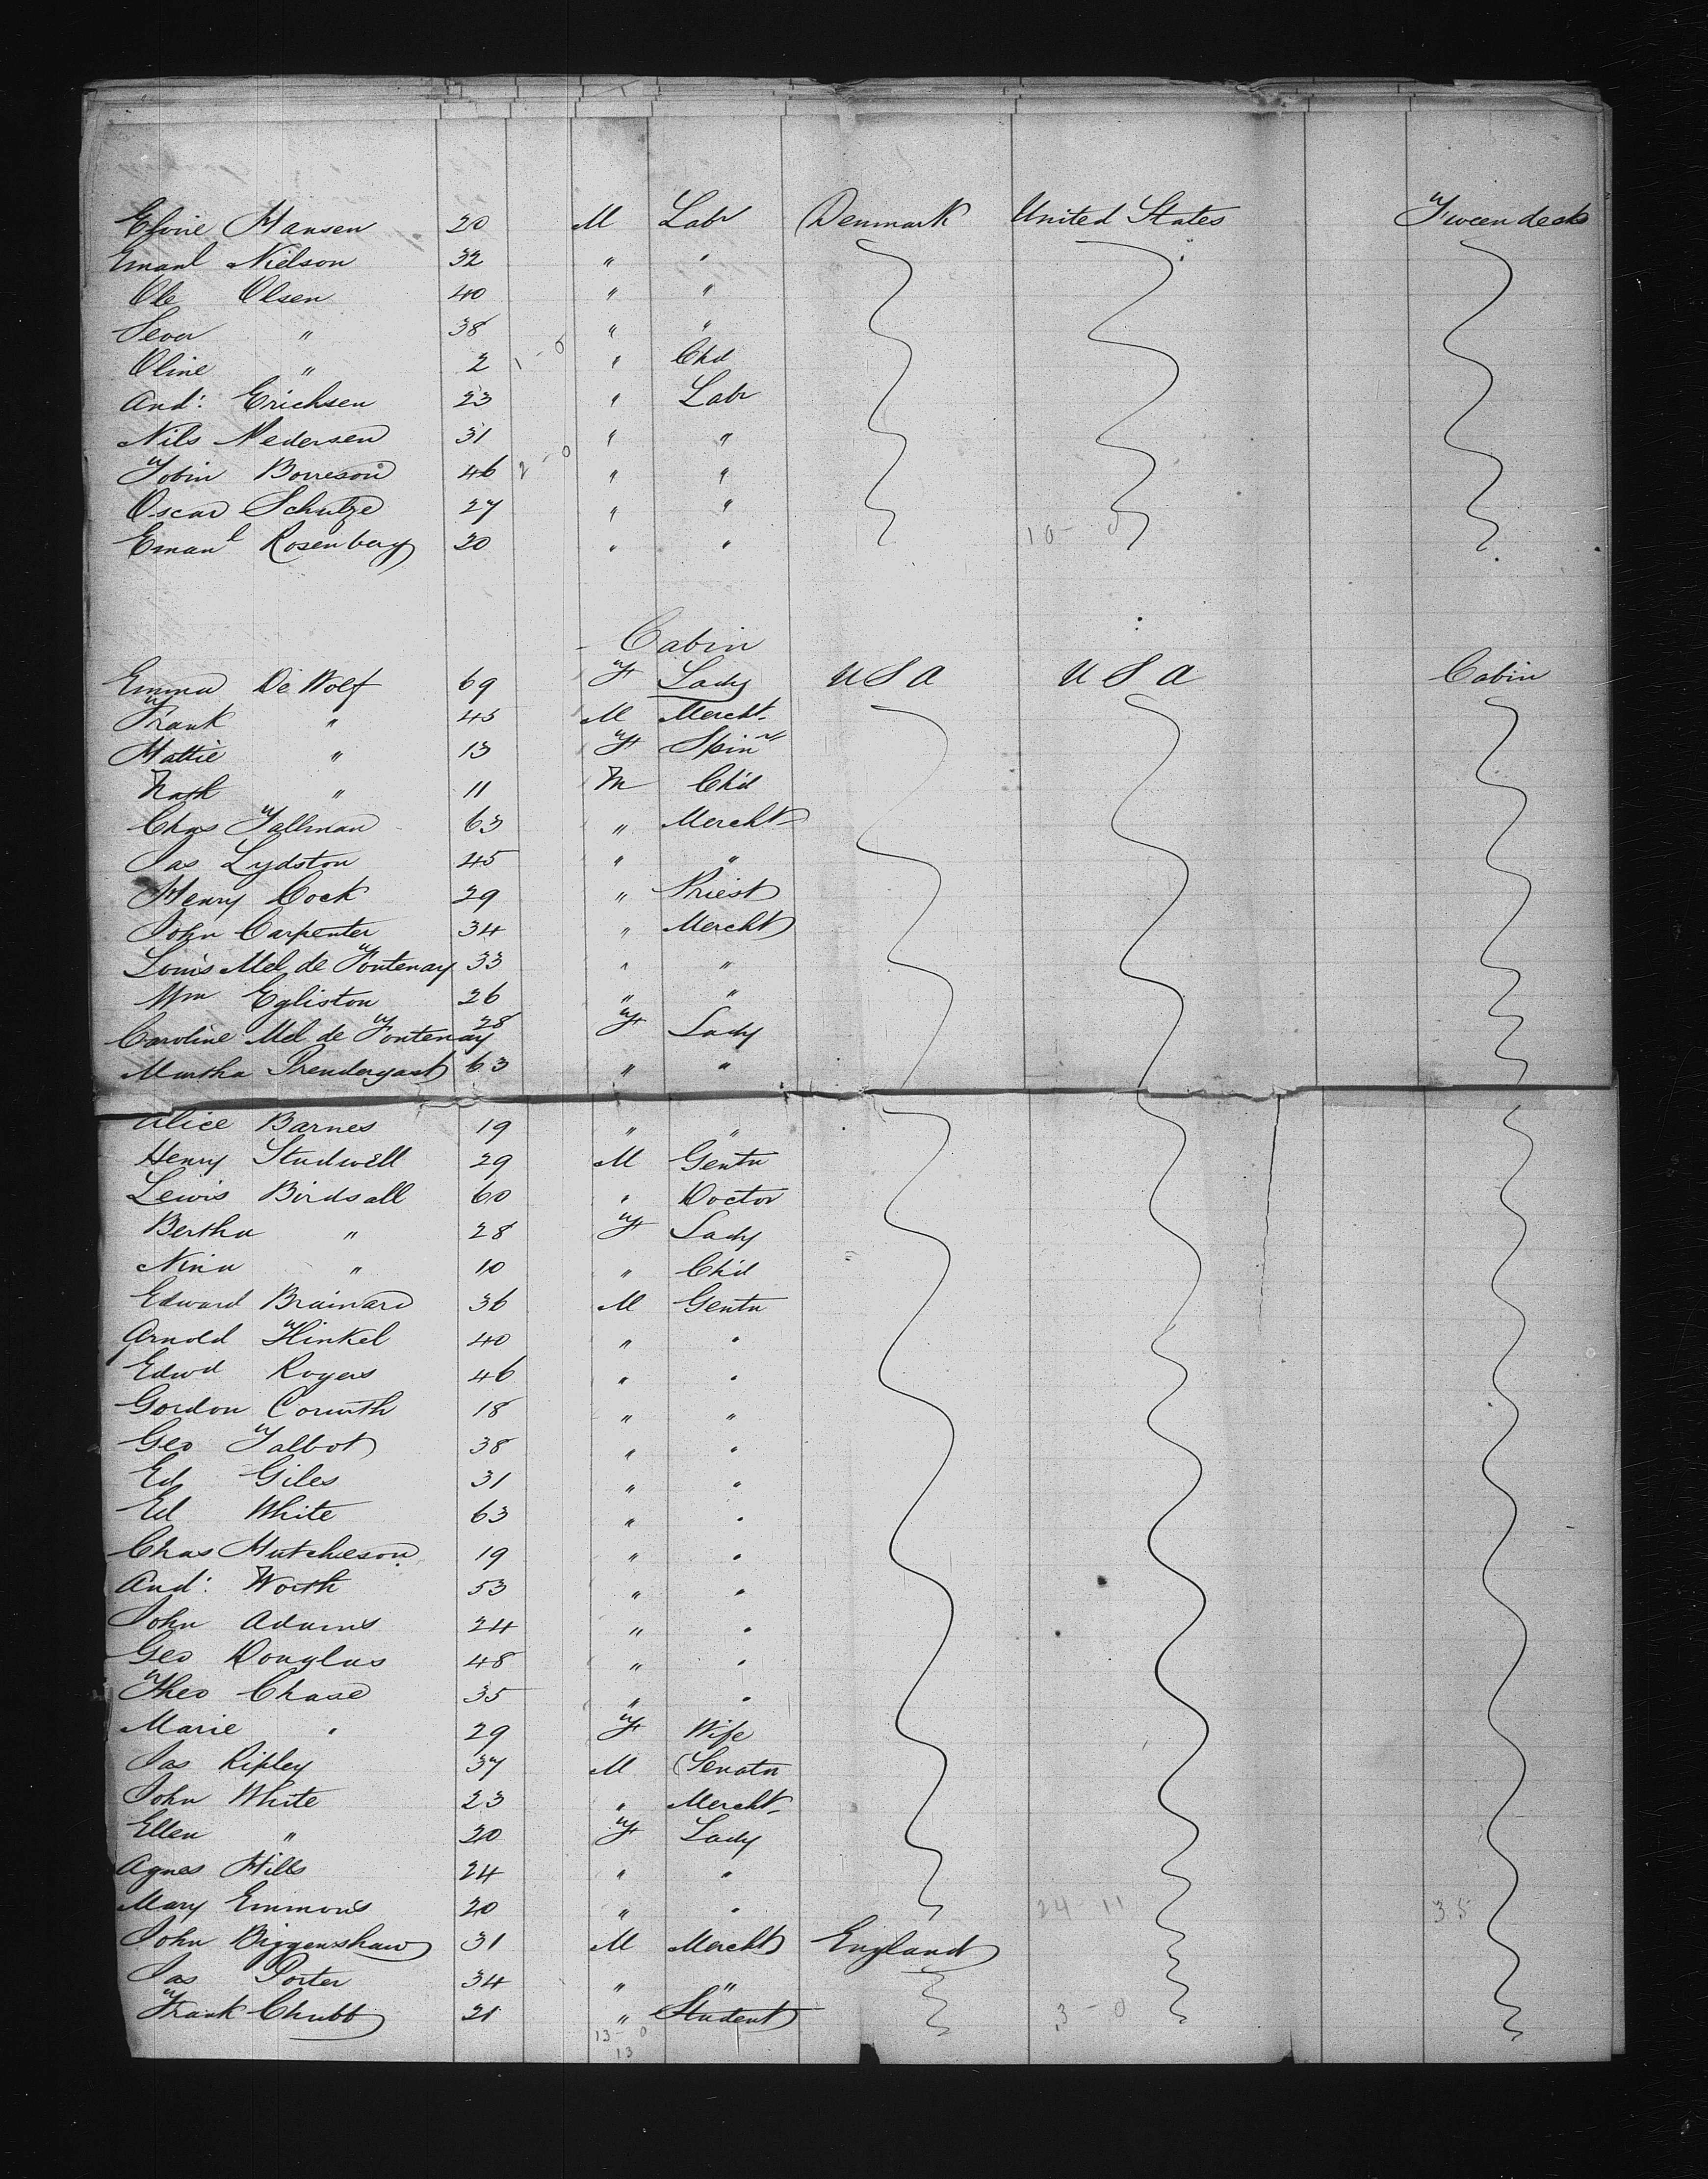 Elvine Hansen 20 M Labr Denmark United States Tween decks
Emanl Nielson 32 " "
Ole Olsen 40 " "
Sever " 38 " "
Oline " 2 1-0 " Chd
And: Erichsen 23 " Labr
Nils Pedersen 31 " "
Tobin Borreson 46 2-0 " "
Oscar Schultze 27 " "
Emanl Rosenberg 20 " " 10-0
Cabin
Emma De Wolf 69 F Lady U S A U S A Cabin
Frank " 45 M Mercht
Hattie " 13 F Spinr
Nath " 11 M Ch'd
Chas Tallman 63 " Mercht
Jas Lydston 45 " "
Henry Cock 29 " Priest
John Carpenter 34 " Mercht
Louis Mel de Fontenay 33 " "
Wm Egliston 26 " "
Caroline Mel de Fontenay 28 F Lady
Martha Prendergast 63 " "
Alice Barnes 19 " "
Henry Studwell 29 M Gentn
Lewis Birdsall 60 " Doctor
Bertha " 28 F Lady
Nina " 10 " Ch'd
Edward Brainard 36 M Gentn
Arnold Hinkel 40 " "
Edwd Rogers 46 " "
Gordon Corinth 18 " "
Geo Talbot 38 " "
Ed Giles 31 " "
Ed White 63 " "
Chas Hutcheson 19 " "
And: Worth 53 " "
John Adams 24 " "
Geo Douglas 48 " "
Theo Chase 35 " "
Marie " 29 F Wife
Jas Ripley 37 M Senatr
John White 23 " Mercht
Ellen " 20 F Lady
Agnes Hills 24 " "
Mary Emmons 20 " " 24-11 35
John Biggenshaw 31 M Mercht England
Jas Porter 34 " "
Frank Chubb 21 " Student 3-0
13-0
13